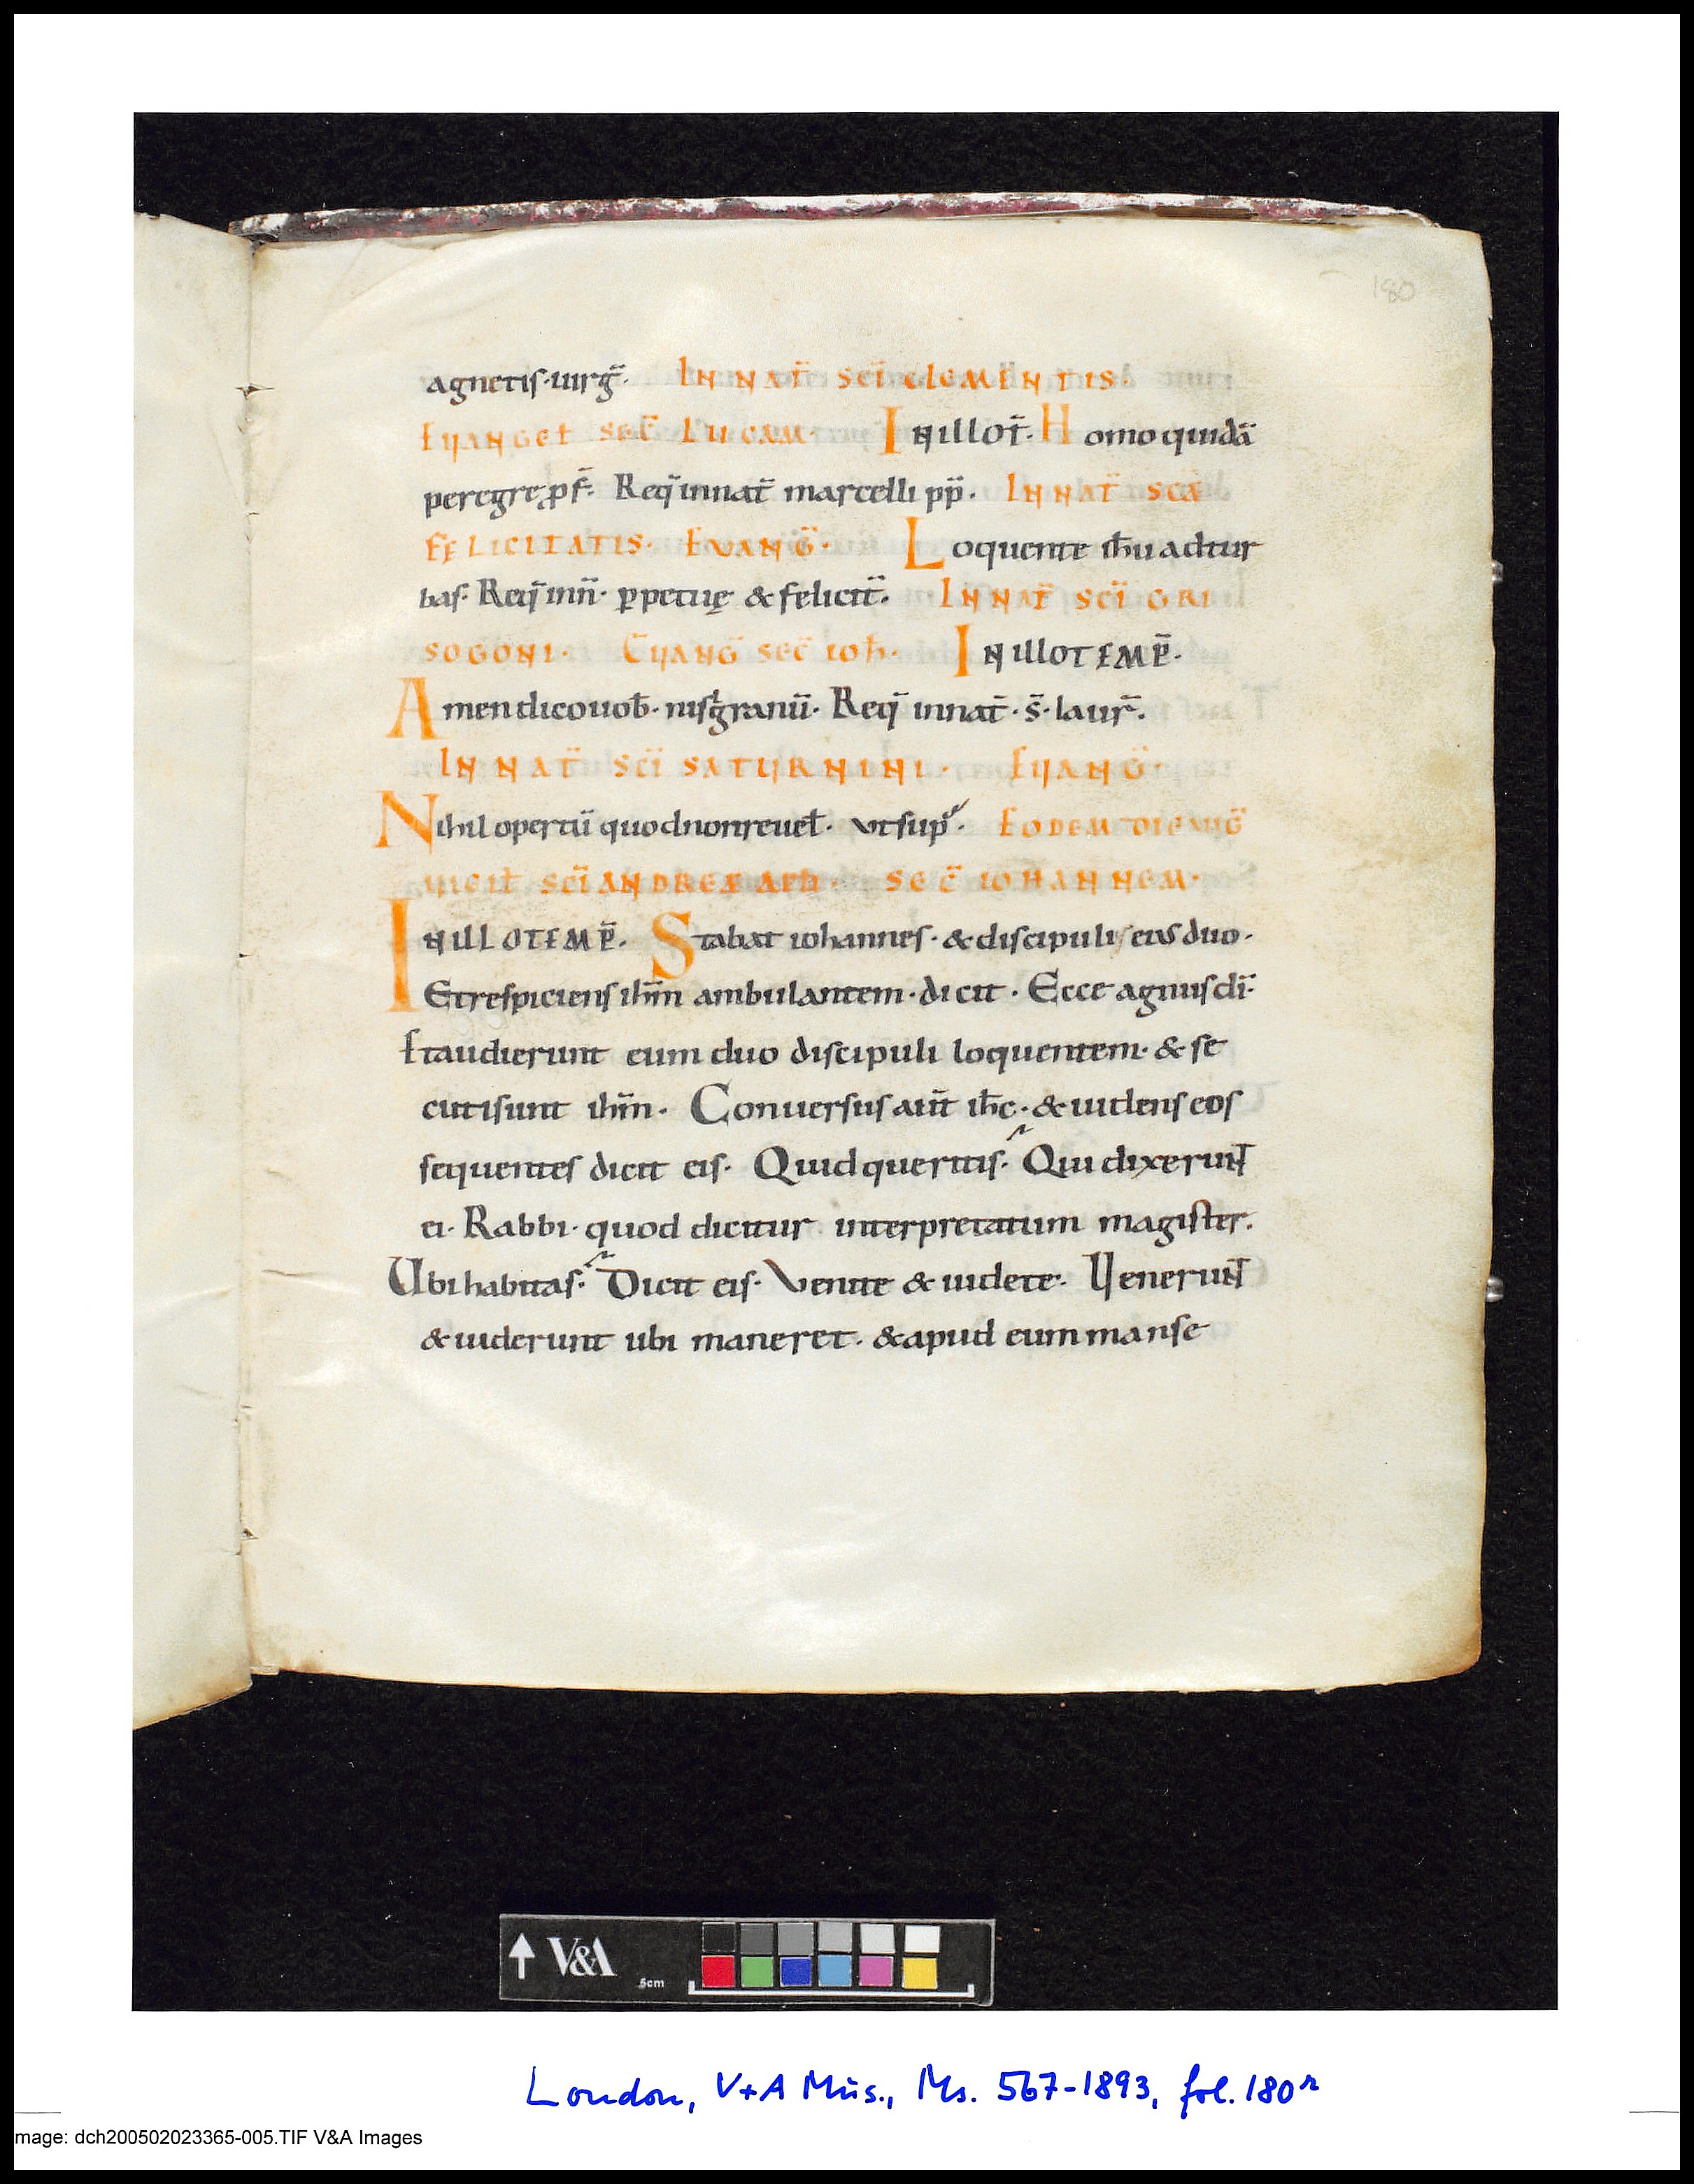 180
agnetis·uirḡ· IN NAT̄ SCĪ CLEMENTIS·
EUANGEŁ SEC̄ LUCAM· INILLOT̄· Homo quidā
peregre ꝓf̄· Req̄ innat̄ marcelli pp̄· IN NAT̄ SCĀ
FELICITATIS· EVANḠ· Loquente ih̄u adtur
bas· Req̄ inn̄· ꝑpetuę & felicit̄· IN NAT̄ SCĪ GRI
SOGONI· EUANḠ SEC̄ IOH̄· IN ILLOTEMP̄·
Amen dico uob̄· nisi granū· Req̄ innat̄· s̄· laur̄·
IN NAT̄ SCĪ SATURNINI· EUANḠ·
Nihil opertū quod non reuel̄· vt sup· EODEM DIE
SCĪ ANDREAE SEC̄ IOHANNEM·
IN ILLOTEMP̄· Stabat iohannes· & discipuli eius duo·
Et respiciens ih̄m ambulantem· dicit· Ecce agnus dī·
Et audierunt eum duo discipuli loquentem· & se
cuti sunt ih̄m· Conuersus aut̄ ih̄c· & uidens eos
sequentes dicit eis· Quid queritis· Qui dixerunt
ei· Rabbi· quod dicitur interpretatum magister·
Ubi habitas· Dicit eis· Venite & uidete· Uenerunt
& uiderunt ubi maneret· & apud eum manse
V&A
5cm
London, V+A Mus., Ms. 567-1893, fol. 180r
mage: dch200502023365-005.TIF V&A Images